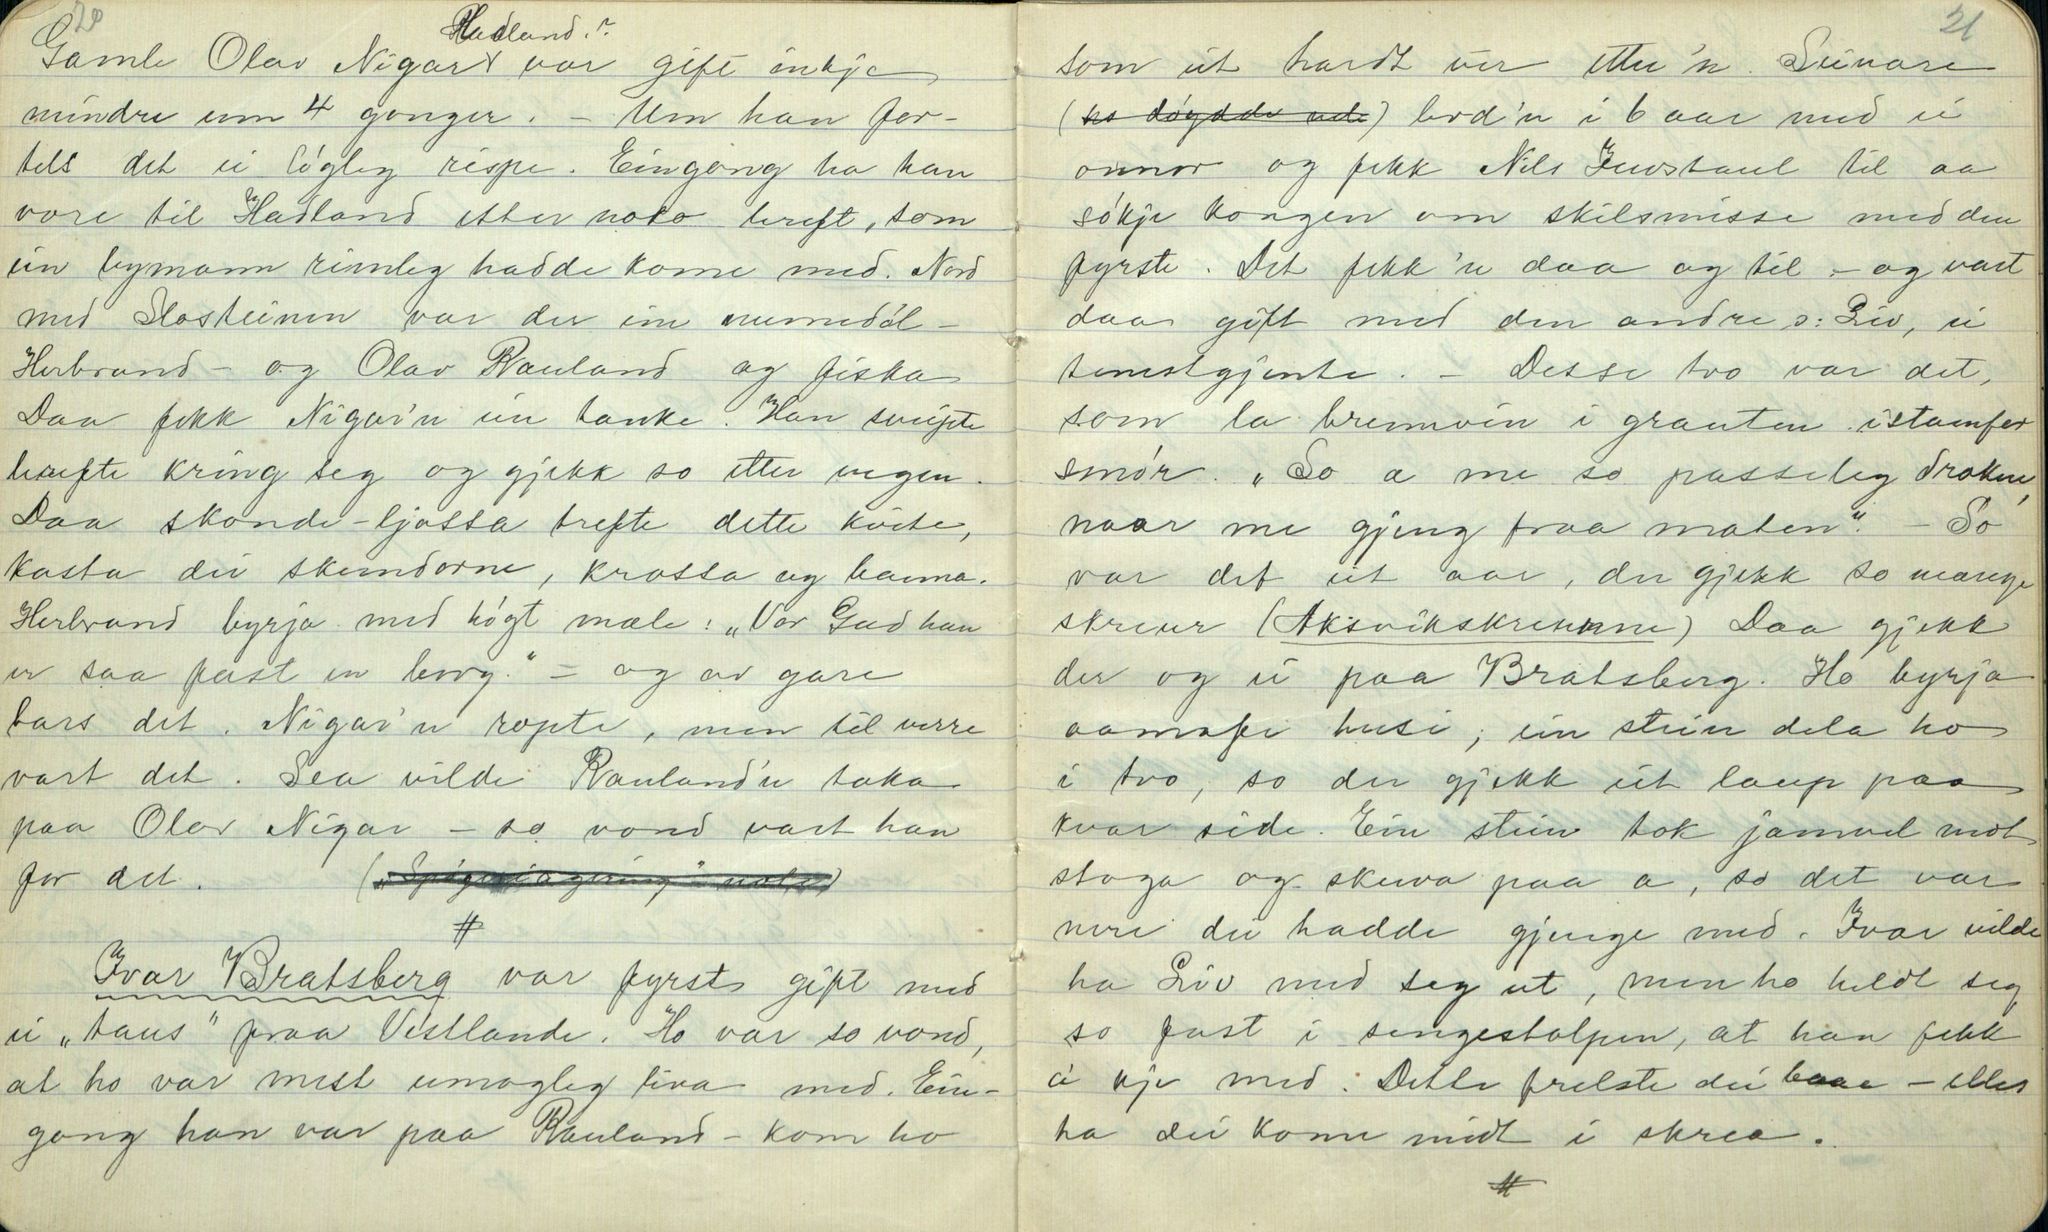 20
Hadland.?
Gamle Olav Nigar var gift inkje
mindre enn 4 gonger. – Um han for-
tels det ei løgleg rispe. Eingong ha han
vore til Hadland etter noko kreft, som
ein bymann rimleg hadde kome med. Nord
med Slosteinen var der ein numedøl –
Herbrand – og Olav Rauland og fiska
Daa fekk Nigar'n ein tanke. Han sveipte
kring seg og gjekk so etter vegen.
Daa skonde-ljossa trefte dette kvite,
kasta dei skeindorne, krossa og banna.
Herbrand byrja med høgt mæle: „Vor Gud han
er saa fast en borg." – og av gare
bars det. Nigar'n ropte, men til verre
vart det. Sea vilde Rauland'n taka
paa Olav Nigar – so vond vart han
for det.
#
Ivar Bratsberg var fyrst gift med
ei „taus" fraa Vestlande. Ho var so vond,
at ho var mest umogleg liva med. Ein-
gong han var paa Rauland – kom ho
21
som eit hardt ver etter'n. Seinare
(ho døydde ) lovd'n i 6 aar med ei
onnor og fekk Nils Juvstaul til aa
søkje kongen om skilsmisse med den
fyrste. Det fekk'n daa og til – og vart
daa gift med den andre ɔ: Liv, ei
tenestgjente. – Desse tvo var det,
som la brennvin i grauten istaenfor
smør. „So æ me so passeleg drokne,
naar me gjeng fraa maten". – So
var det eit aar, der gjekk so mange
skreur (Aksvikskreunne) Daa gjekk
der og ei paa Bratsberg. Ho byrja
ovanfe husi, ein stein dela ho
i tvo, so der gjekk eit laup paa
kvar side. Ein stein tok jamvel mot
stoga og skuva paa a, so det var
nere dei hadde gjenge med. Ivar vilde
ha Liv med seg ut, men ho heldt seg
so fast i sengestolpen, at han fekk
a kje med. Dette frelste dei bæe – elles
ha dei kome midt i skrea.
#